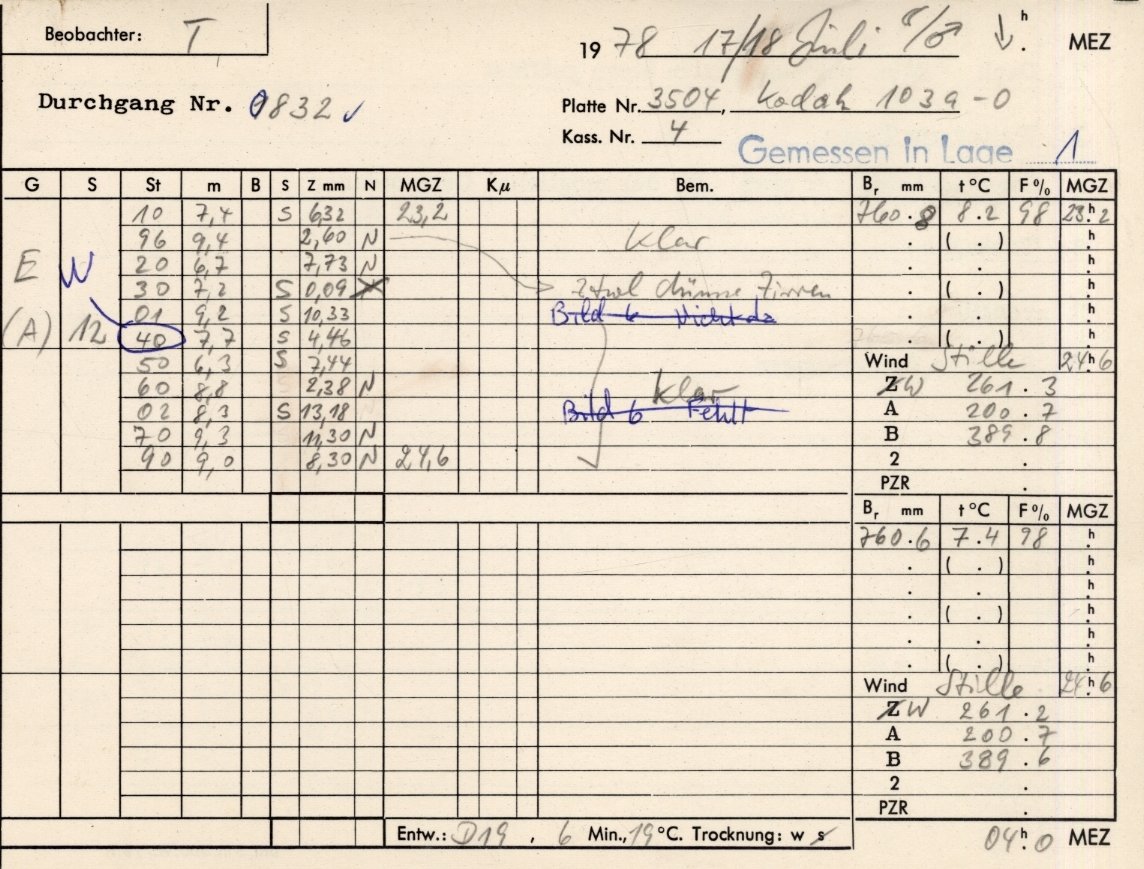 Beobachter: T
1978 17/18 Juli h MEZ
Durchgang Nr. 0832
Platte Nr. 3504, Kodak 103a-O
Kass. Nr. 4
Gemessen in Lage 1
G S St m B S Z mm N MGZ Kμ Bem. Br mm t °C F % MGZ
10 7,4 S 6,32 23,2 760.8 8.2 98 23h.2
96 9,4 2,60 N klar . ( . ) h.
E W 20 6,7 7,73 N . . h.
30 7,2 S 0,09 dünne Zirren . ( . ) h.
01 9,2 S 10,33 Bild 6 Nicht da . . h.
(A) 12 40 7,7 S 4,46 . ( . ) h.
50 6,3 S 7,44 Wind Stille 24h.6
60 8,8 2,38 N klar Z W 261.3
02 8,3 S 13,18 Bild 6 Fehlt A 200.7
70 9,3 11,30 N B 389.8
90 9,0 8,30 N 24,6 2 .
PZR .
Br mm t °C F % MGZ
760.6 7.4 98 h.
. ( . ) h.
. . h.
. ( . ) h.
. . h.
. ( . ) h.
Wind Stille 24h.6
Z W 261.2
A 200.7
B 389.6
2 .
PZR .
Entw.: D19, 6 Min., 19 °C. Trocknung: w s
04h.0 MEZ